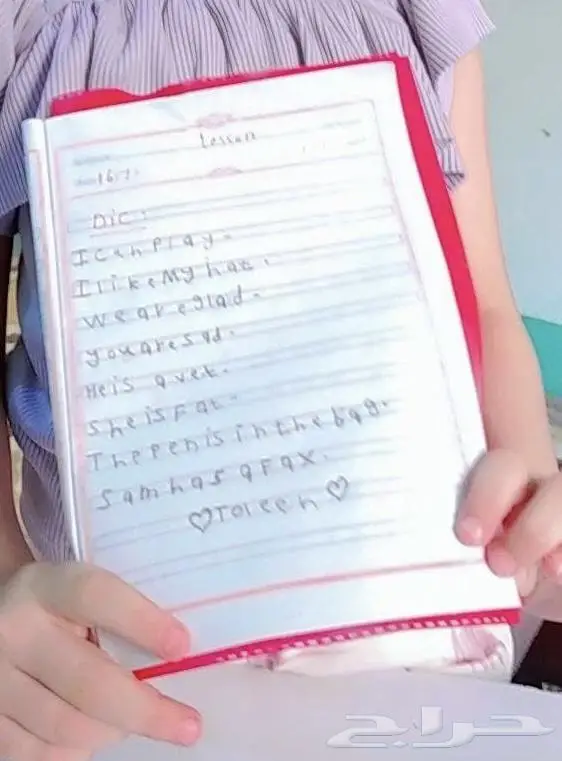 Lesson
16/7
Dic:
I can play.
I like My hat.
We are glad.
you are sad.
He is a vet.
She is Fat.
The pen is in the bag.
Sam has a Fax.
♡ Toleen ♡
حراج